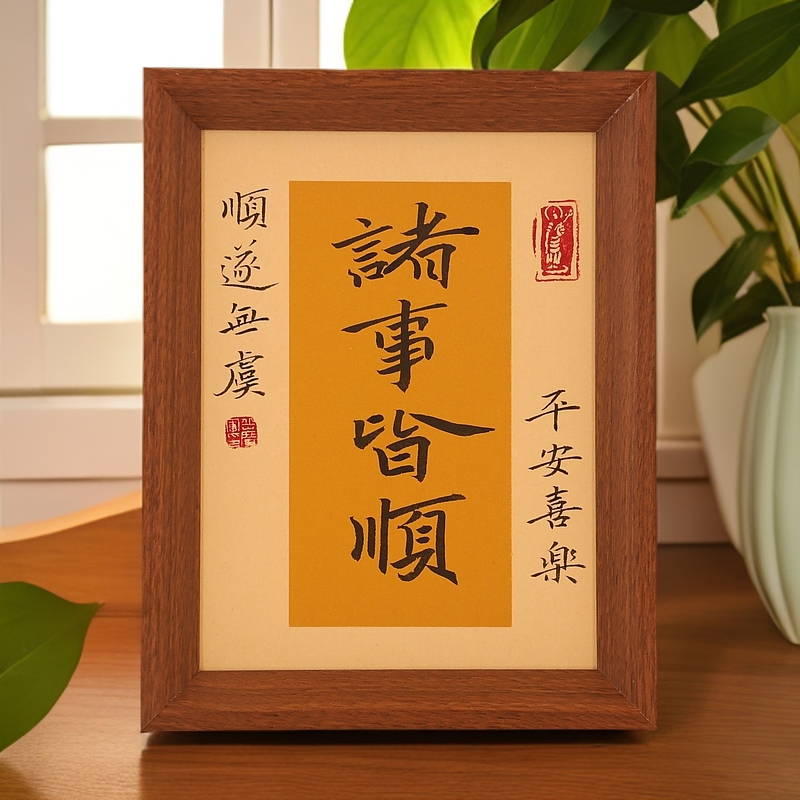 平安喜樂
諸事皆順
順遂無虞